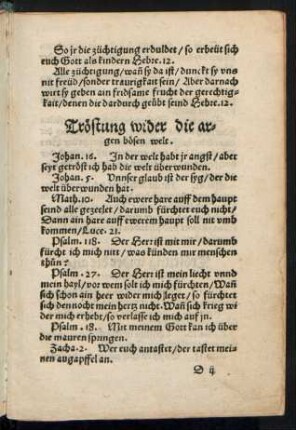 So jr die züchtigung erduldet/so erbeüt sich
euch Gott als kindern Hebre.12.
Alle züchtigung/wañ sy da ist/dunckt sy vns
nit freüd/sonder traurigkait sein/Aber darnach
wirt sy geben ain fridsame frucht der gerechtig-
kait/denen die dardurch geübt seind Hebre.12.
Tröstung wider die ar-
gen bösen welt.
Johan.16. In der welt habt jr angst/aber
seyt getröst ich hab die welt überwunden.
Johan.5. Vnnser glaub ist der syg/der die
welt überwunden hat.
Math.10. Auch ewere hare auff dem haupt
seind alle gezelet/darumb fürchtet euch nicht/
Dann ain hare auff ewerem haupt soll nit vmb
kommen/Luce.21.
Psalm.118. Der Herr ist mit mir/darumb
fürcht ich mich nitt/was künden mir menschen
thůn?
Psalm.27. Der Herr ist mein liecht vnnd
mein hayl/vor wem solt ich mich fürchten/Wañ
sich schon ain heer wider mich leget/so fürchtet
sich dennocht mein hertz nicht. Wañ sich krieg wi
der mich erhebt/so verlasse ich mich auff jn.
Psalm.18. Mit meinem Gott kan ich über
die mauren spryngen.
Zacha.2. Wer euch antastet/der tastet mei-
nen augapffel an.
D ij